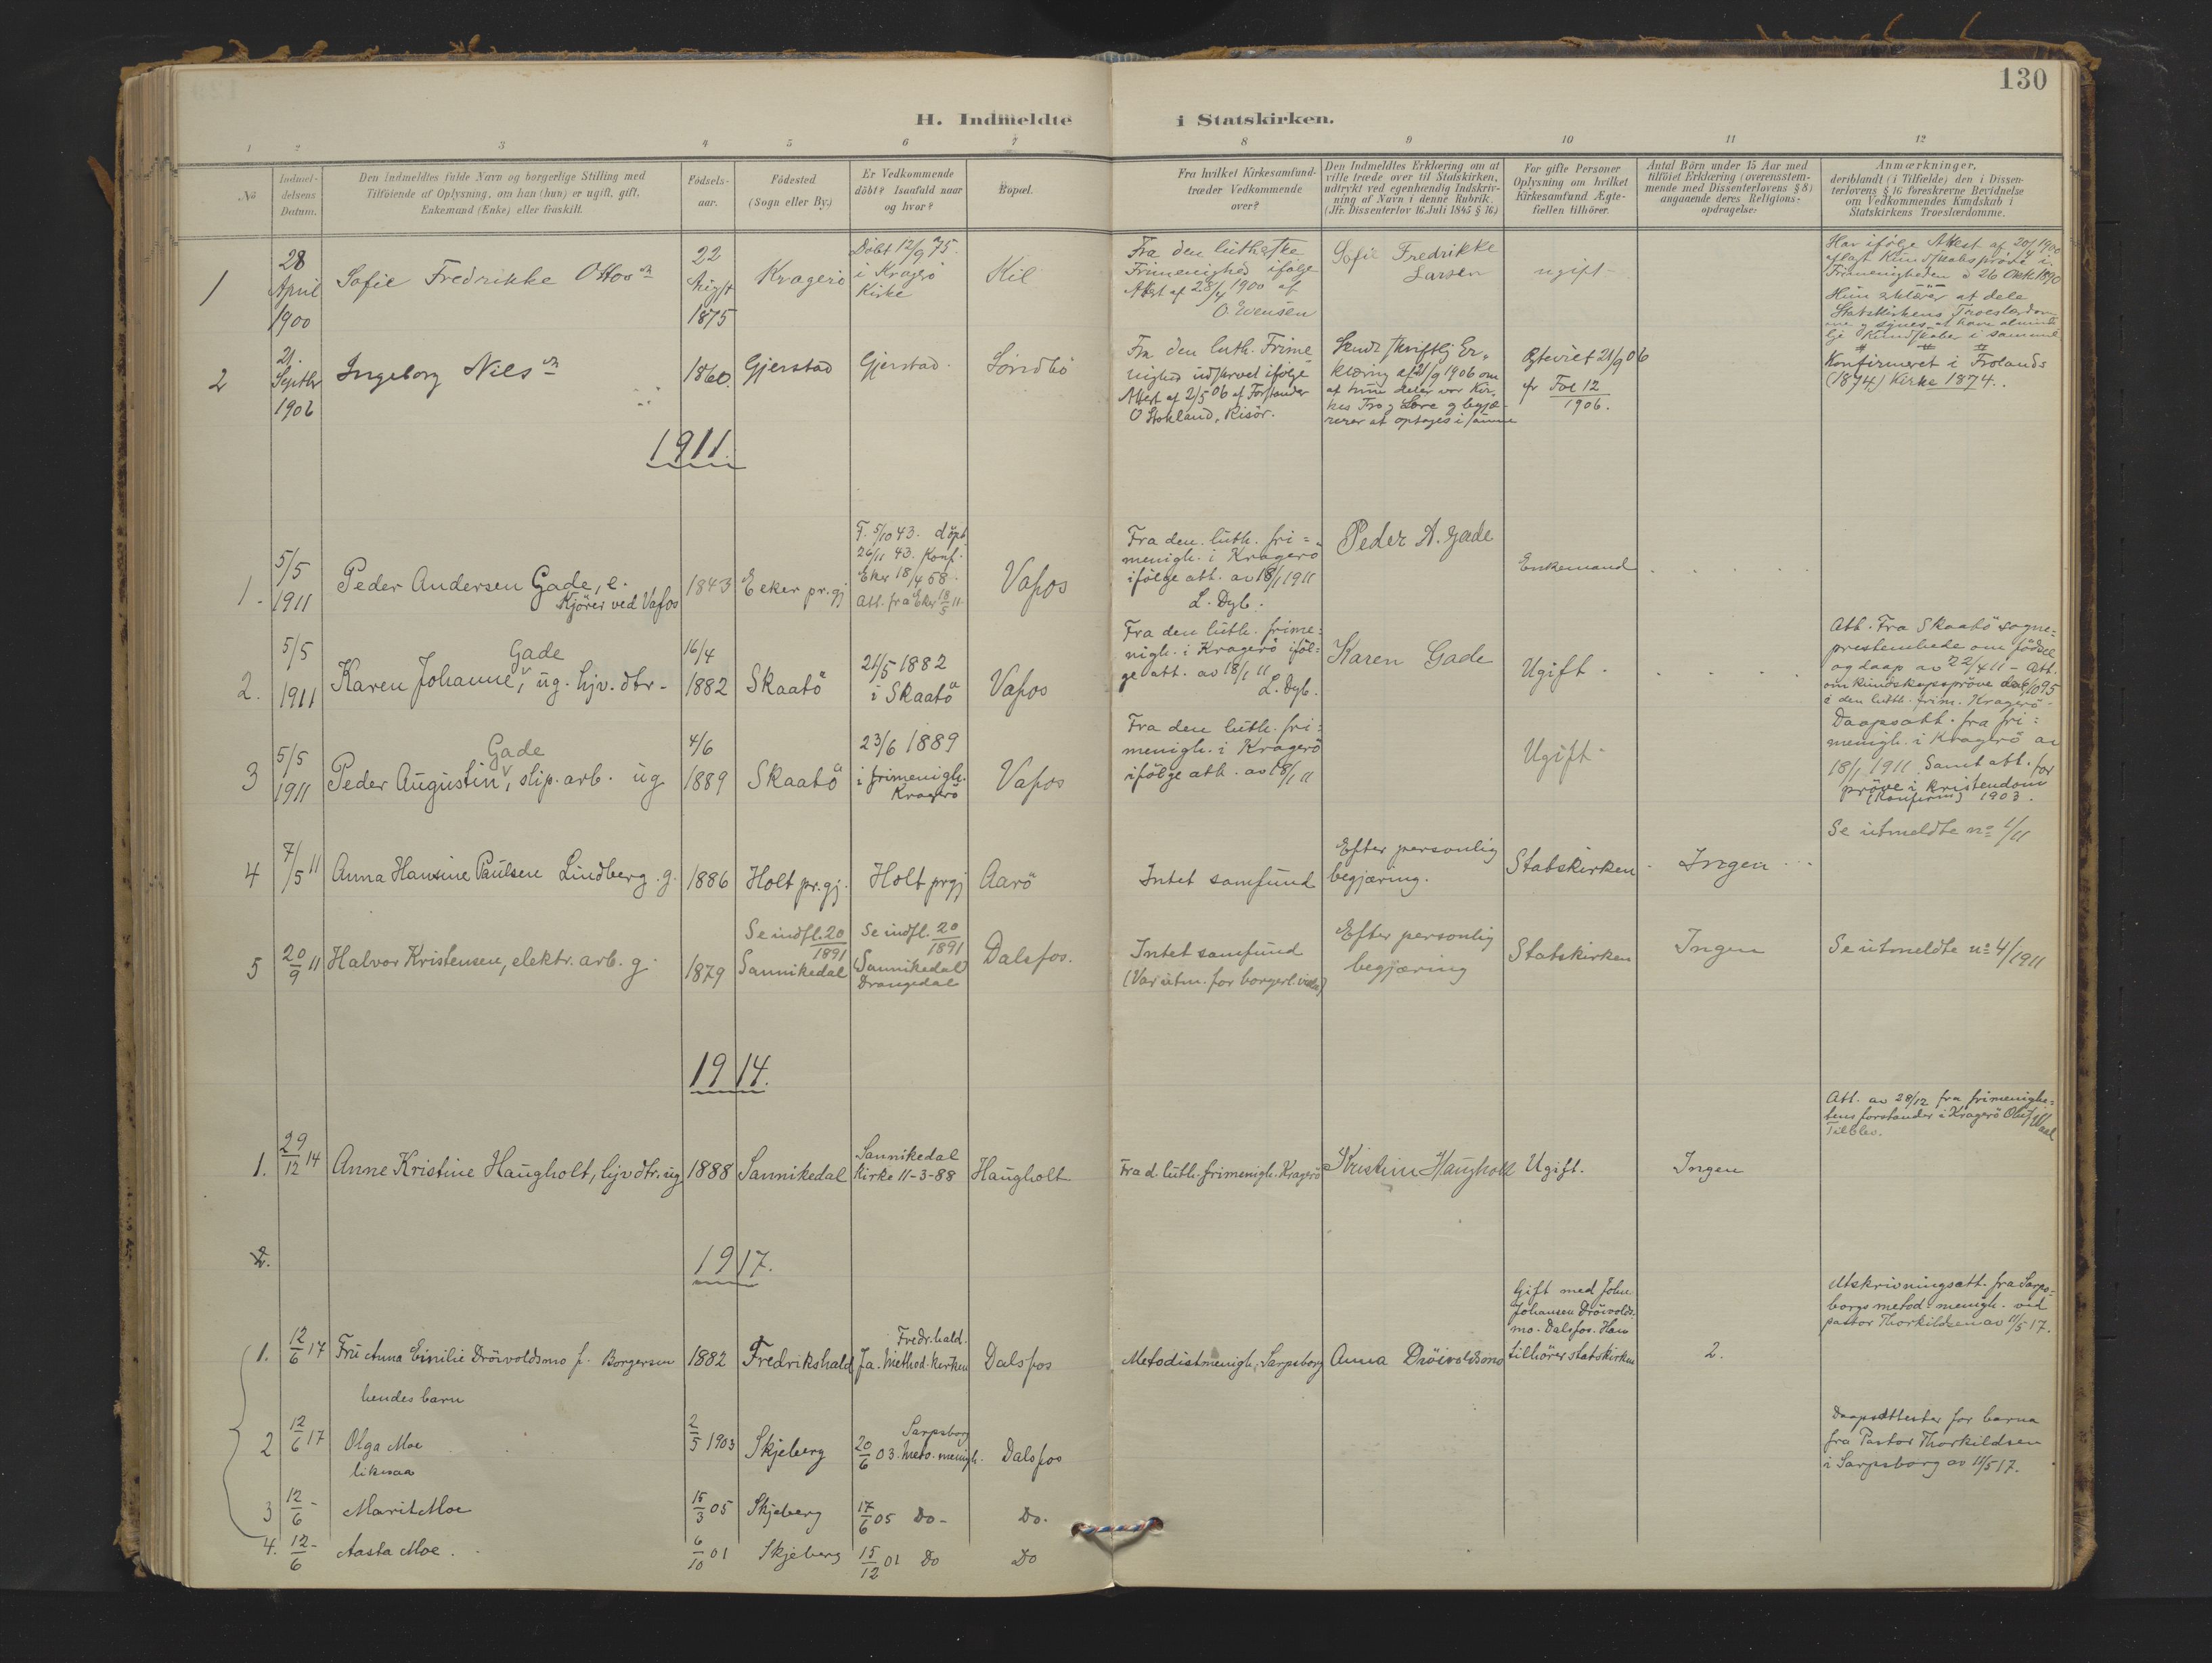 130
H. Indmeldte i Statskirken.
1 2 3 4 5 6 7 8 9 10 11 12
No
Indmel-
delsens
Datum.
Den Indmeldtes fulde Navn og borgerlige Stilling med
Tilføiende af Oplysning, om han (hun) er ugift, gift,
Enkemand (Enke) eller fraskilt.
Fødsels-
aar.
Fødested
(Sogn eller By.)
Er Vedkommende
døbt? Isaafald naar
og hvor?
Bopæl.
Fra hvilket Kirkesamfund
træder Vedkommende
over?
Den Indmeldtes Erklæring om at
ville træde over til Statskirken,
udtrykt ved egenhændig Indskriv-
ning af Navn i denne Rubrik.
(Jfr. Dissenterlov 16. Juli 1845 § 16.)
For gifte Personer
Oplysning om hvilket
Kirkesamfund Ægte-
fællen tilhører.
Antal Børn under 15 Aar med
tilføiet Erklæring (overensstem-
mende med Dissenterlovens § 8)
angaaende deres Religions-
opdragelse:
Anmærkninger,
deriblandt (i Tilfælde) den i Dissen-
terlovens § 16 foreskrevne Bevidnelse
om Vedkommendes Kundskab i
Statskirkens Troeslærdomme.
1
28
April
1900
Sofie Fredrikke Ottosdt
22
Aug
1875
Kragerö
Döbt 12/9 75.
i Kragerö
Kirke
Kil
Fra den lutherske
Frimenighed ifölge
Attest af 28/4 1900 af
O. Evensen
Sofie Fredrikke
Larsen
ugift
Har ifölge Attest af 20/4 1900
aflagt Kundskabspröve i
Frimenigheden d 26 Oktb. 1890
Hun erklærer at dele
Statskirkens Troeslærdom-
me og synes at have almind-
lge Kundskaber i samme
2
21.
Septbr
1906
Ingeborg Nilsdt
1860.
Gjerstad
Gjerstad.
Sөndbö
Fra den luth. Frime
nighed udskrevet ifölge
Attest af 2/5 06 af Forstander
O Stokland, Risör.
Sendt skriftlig Er-
klæring af 21/9 1906 om
at hun deler vor Kir-
kes Tro og Lære og begjæ-
rer at optages i samme
Ægteviet 21/9 06
fr Foe 12
1906.
Konfirmeret i Frolands
(1874) Kirke 1874.
1911.
1.
5/5
1911
Peder Andersen Gade, e.
Kjörer ved Vafos
1843
Eeker pr.gj
F. 5/10 43. döpt
26/11 43. Konf.
Eker 18/4 58.
Att. fra Eker 18/5 11.
Vafos
Fra den luth. fri=
menigh. i Kragerö
ifölge att. av 18/1 1911
L. Dyb.
Peder A. Gade
Enkemand
2.
5/5
1911
Gade
Karen Johanne, ug. hjv. dtr-
16/4
1882
Skaatö
21/5 1882
i Skaatö
Vafos
Fra den luth. frime=
nigh. i Kragerö iföl=
ge att. av 18/1 11
L. Dyb.
Karen Gade
Ugift.
Att. Fra Skaatö sogne=
prestembede om födsel
og daap av 22/4 11 - Att.
om kundskapspröve d. 6/10 95
i den luth. frim. Kragerö.
3
5/5
1911
Gade
Peder Augustin, slip. arb. ug
4/6
1889
Skaatö
23/6 1889
i frimenigh.
Kragerö
Vafos
Fra den luth. fri=
menigh. i Kragerö
ifölge att. av 18/1 11
Ugift
Daapsatt. fra fri=
menigh. i Kragerö av
18/1 1911. Samt att. for
pröve i kristendom
(Konfirm) 1903.
4
7/5 11
Anna Hansine Paulsen Lindberg. g.
1886
Holt pr.gj.
Holt prgj
Aarö
Intet samfund
Efter personlig
begjæring.
Statskirken
Ingen
Se utmeldte no 1/11
5
20/9 11
Halvor Kristensen, elektr. arb. g.
1879
Se indfl. 20
1891
Sannikedal
Se indfl. 20
1891
(Sannikedal)
Drangedal
Dalsfos.
Intet samfund
(Var utm. for borgerl. vielse)
Efter personlig
begjæring
Statskirken
Ingen
Se utmeldte no 4/1911
1914.
1.
29/12 14
Anne Kristine Haugholt, hjvdtr. ug
1888
Sannikedal
Sannikedal
Kirke 11-3-88
Haugholt
Fra d. luth. frimenigh. Kragerö
Kristine Haugholt
Ugift.
Ingen
Att. av 28/12 fra frimenighe=
tens forstander i Kragerö Oluf
Tilblev.
2.
1917.
1.
12/6 17
Fru Anna Emilie Dröivoldsmo f. Borgersen
1882
Fredrikshald
Fredr.hald.
Ja. Method. kirken
Dalsfos
Metodistmenigh. Sarpsborg
Anna Dröivoldsmo
Gift med Johan
Johansen Dröivolds.
mo. Dalsfos. Han
tilhörer statskirken
2.
Utskrivningsatt. fra Sarps=
borgs metod. menigh. ved
pastor Thorkildsen av 11/5 17.
hendes barn
2
12/6 17
Olga Moe
likesaa
2/5 1903
Skjeberg
Sarpsborg
20/6 03. Meto. menigh.
Dalsfos
Daapsattester for barna
fra Pastor Thorkildsen
i Sarpsborg av 11/5 17.
3
12/6 -
Marit Moe
15/3 05
Skjeberg
17/6 05 Do-
Do.
4.
12/6 -
Aasta Moe.
6/10 01
Skjeberg
15/12 01 Do
Do